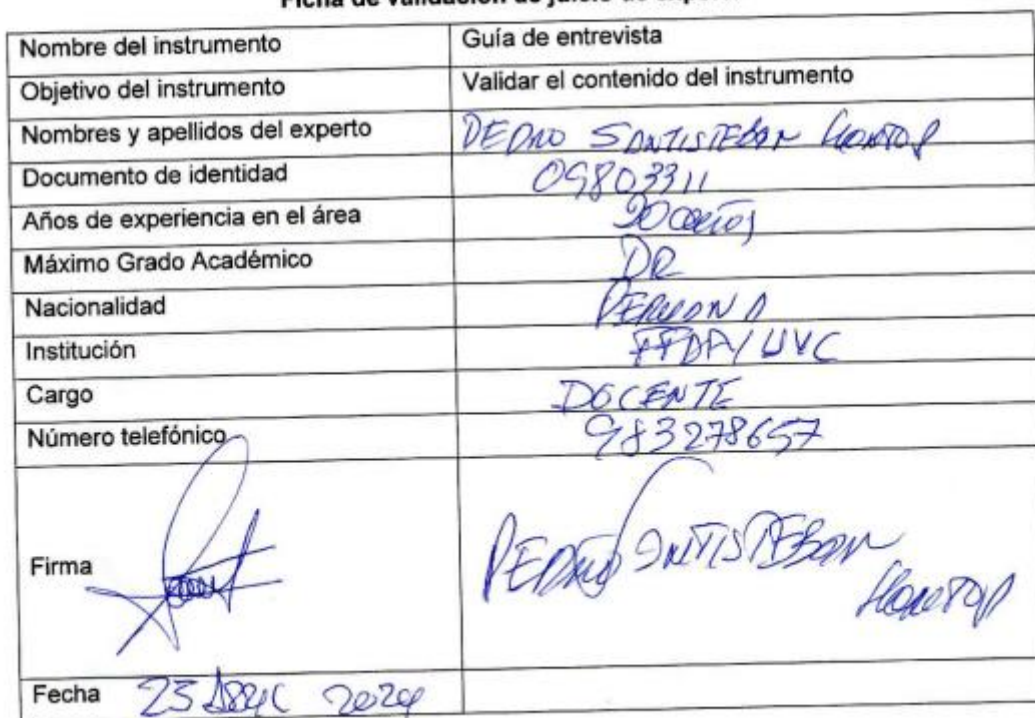 Ficha de validación de juicio de experto
Nombre del instrumento Guía de entrevista
Objetivo del instrumento Validar el contenido del instrumento
Nombres y apellidos del experto PEDRO SANTISTEBAN LLONTOP
Documento de identidad 09803311
Años de experiencia en el área 20 años
Máximo Grado Académico DR
Nacionalidad PERUANA
Institución
Cargo DOCENTE
Número telefónico 983278657
Firma PEDRO SANTISTEBAN
LLONTOP
Fecha 23 ABRIL 2024